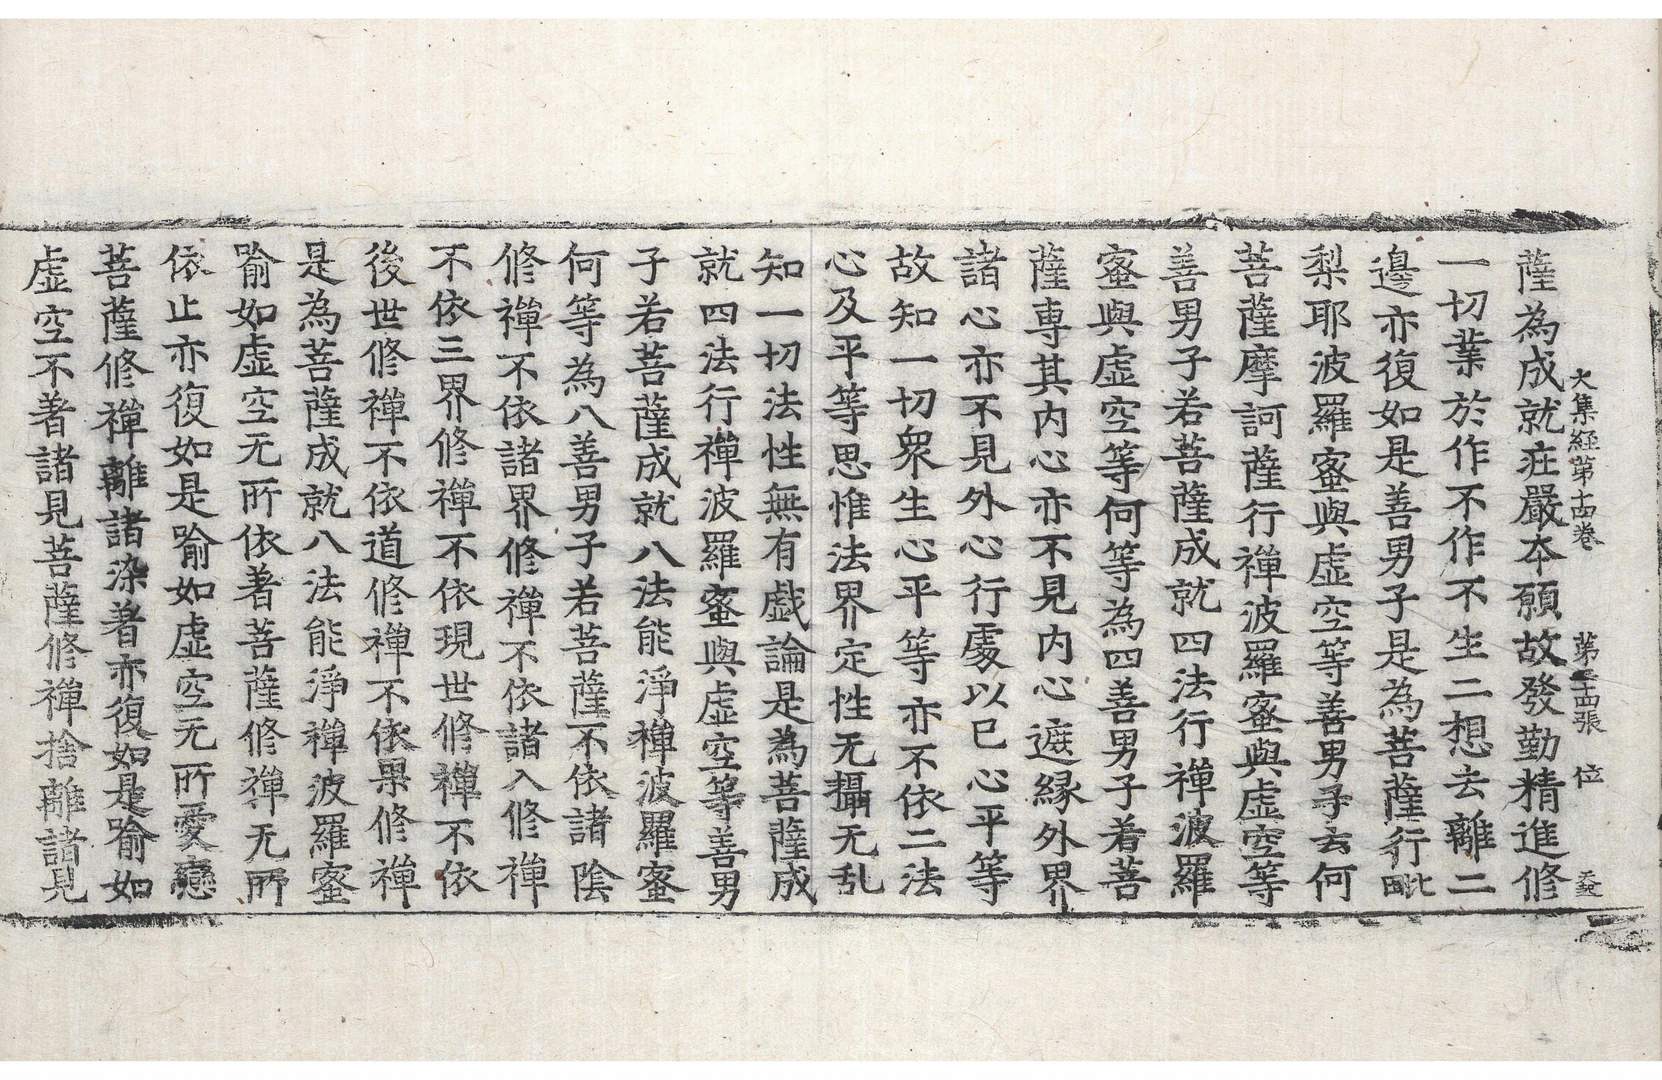 大集經第十四卷 第二十四張 位
薩為成就莊嚴夲願故發勤精進修
一切業於作不作不生二想去離二
邊亦復如是善男子是為菩薩行毗
梨耶波羅蜜與虛空等善男子云何
菩薩摩訶薩行禪波羅蜜與虛空等
善男子若菩薩成就四法行禪波羅
蜜與虛空等何等為四善男子若菩
薩専其內心亦不見內心遮縁外界
諸心亦不見外心行處以已心平等
故知一切衆生心平等亦不依二法
心及平等思惟法界定性无攝无乱
知一切法性無有戱論是為菩薩成
就四法行禪波羅蜜與虛空等善男
子若菩薩成就八法能淨禪波羅蜜
何等為八善男子若菩薩不依諸陰
修禪不依諸界修禪不依諸入修禪
不依三界修禪不依現世修禪不依
後世修禪不依道修禪不依果修禪
是為菩薩成就八法能淨禪波羅蜜
喻如虛空无所依著菩薩修禪无所
依止亦復如是喻如虛空无所愛戀
菩薩修禪離諸染著亦復如是喻如
虛空不著諸見菩薩修禪捨離諸見